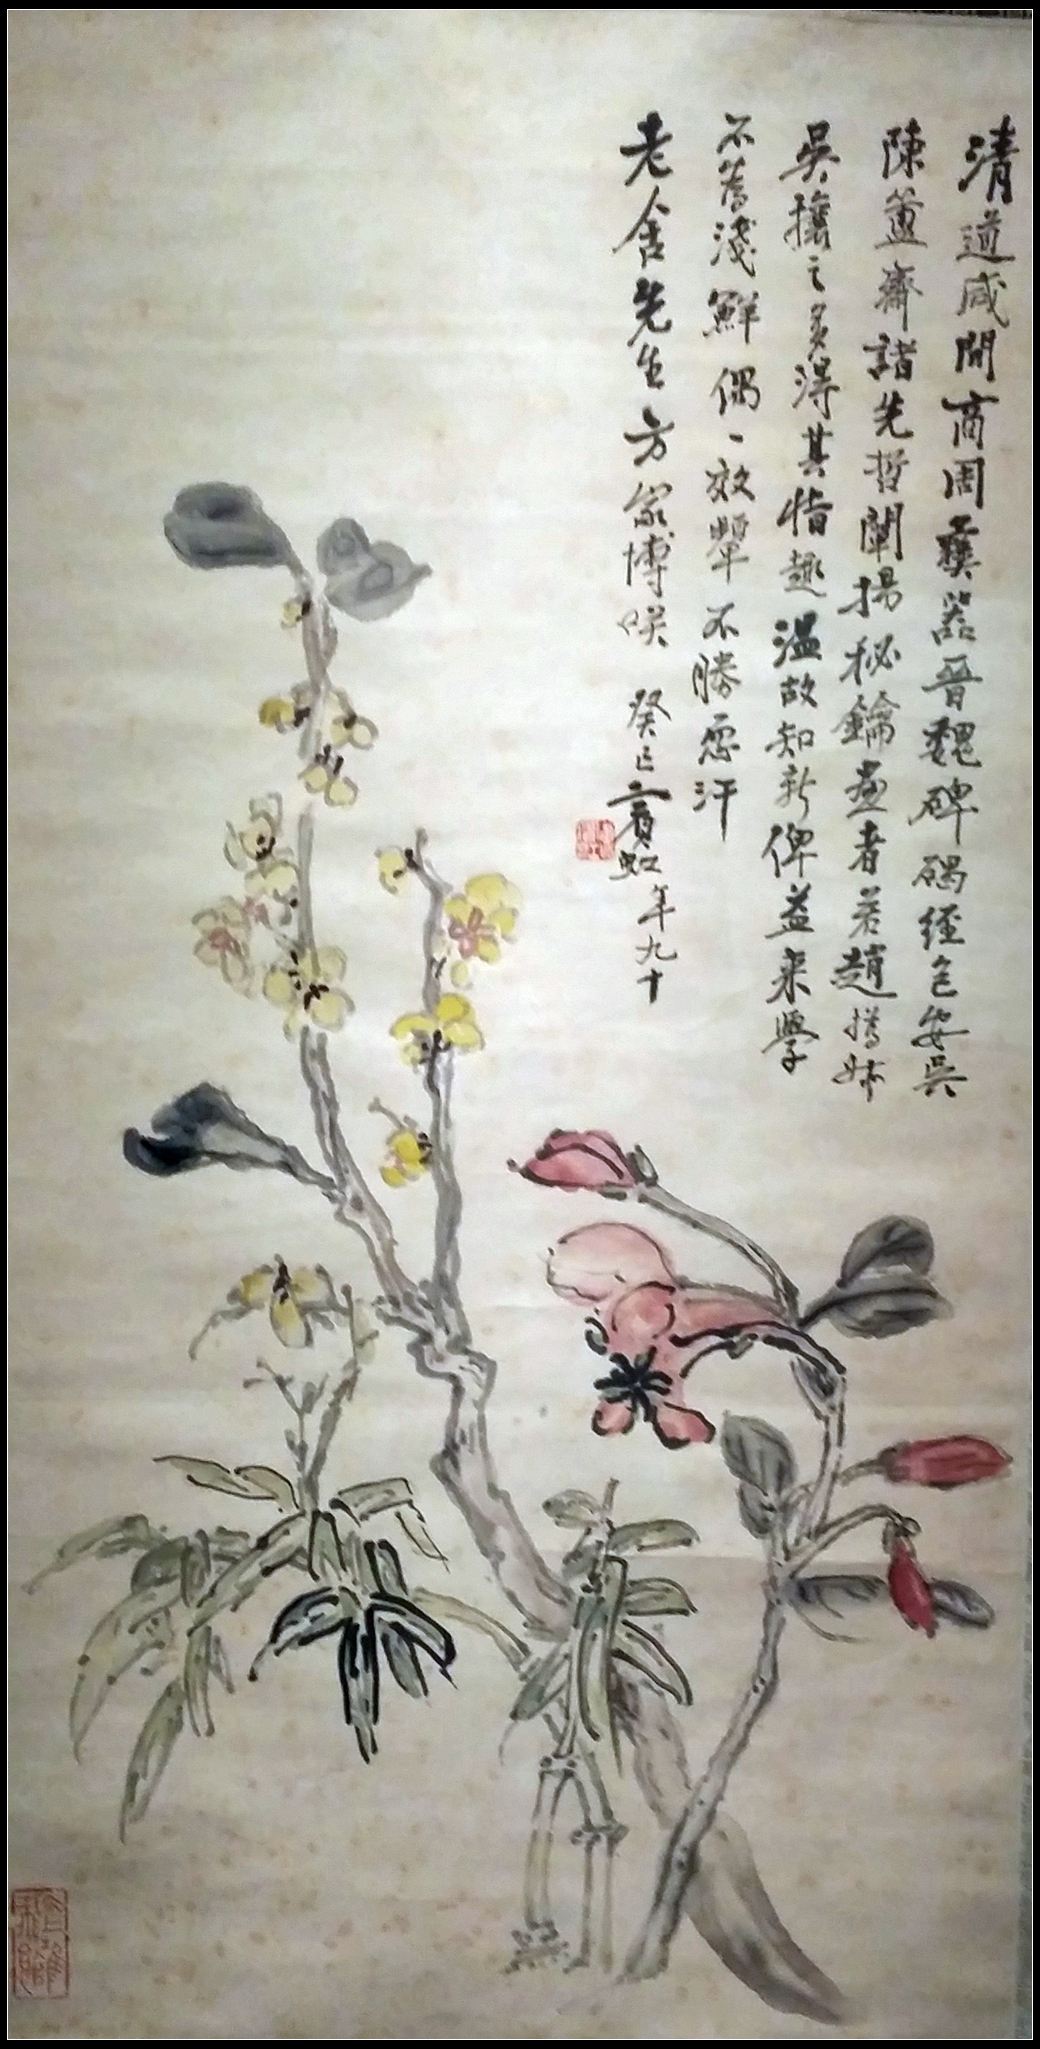 清道咸間商周彝器晉魏碑碣經包安吳
陳簠齋諸先哲闡揚秘鑰畫者若趙撝叔
吳攘之多得其恉趣溫故知新俾益來學
不善淺鮮偶一效顰不勝恧汗
老舍先生方家博咲 癸巳賓虹年九十